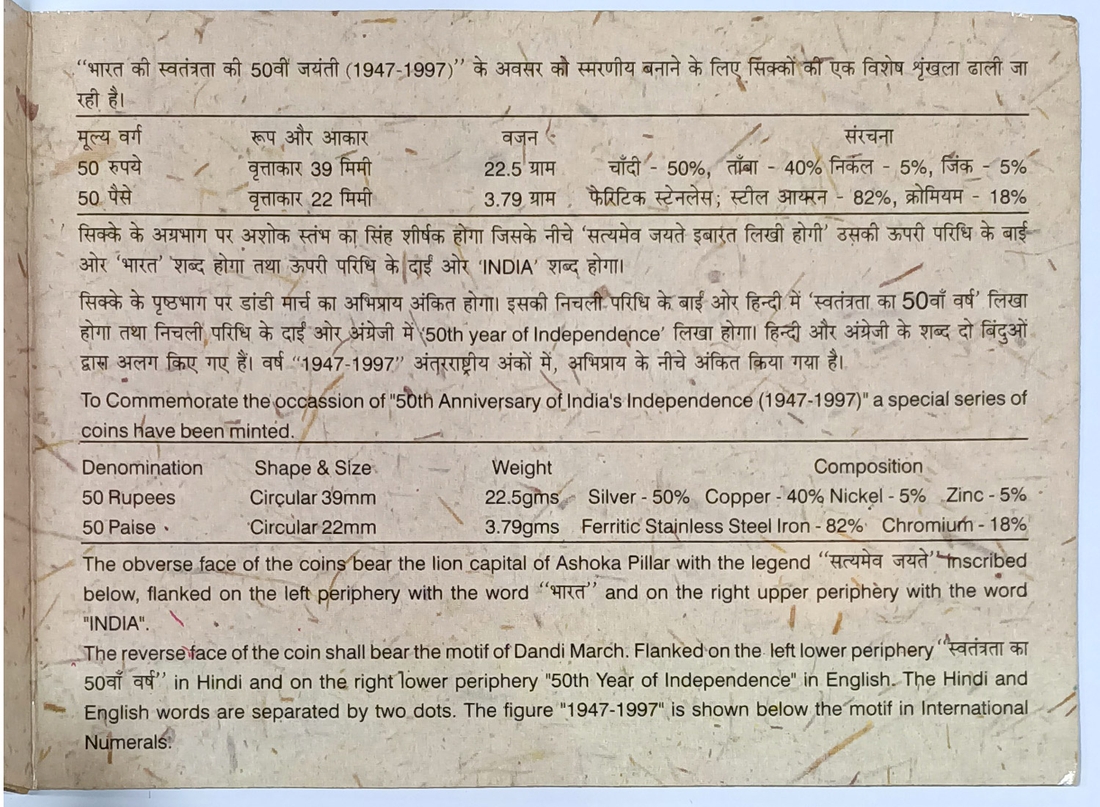 “भारत की स्वतंत्रता की 50वीं जयंती (1947-1997)” के अवसर को स्मरणीय बनाने के लिए सिक्कों की एक विशेष शृंखला ढाली जा
रही है।
मूल्य वर्ग रूप और आकार वज़न संरचना
50 रुपये वृत्ताकार 39 मिमी 22.5 ग्राम चाँदी - 50%, ताँबा - 40% निकल - 5%, जिंक - 5%
50 पैसे वृत्ताकार 22 मिमी 3.79 ग्राम फैरिटिक स्टेनलेस; स्टील आयरन - 82%, क्रोमियम - 18%
सिक्के के अग्रभाग पर अशोक स्तंभ का सिंह शीर्षक होगा जिसके नीचे ‘सत्यमेव जयते इबारत लिखी होगी’ उसकी ऊपरी परिधि के बाईं
ओर ‘भारत’ शब्द होगा तथा ऊपरी परिधि के दाईं ओर ‘INDIA’ शब्द होगा।
सिक्के के पृष्ठभाग पर डांडी मार्च का अभिप्राय अंकित होगा। इसकी निचली परिधि के बाईं ओर हिन्दी में ‘स्वतंत्रता का 50वाँ वर्ष’ लिखा
होगा तथा निचली परिधि के दाईं ओर अंग्रेजी में ‘50th year of Independence’ लिखा होगा। हिन्दी और अंग्रेजी के शब्द दो बिंदुओं
द्वारा अलग किए गए हैं। वर्ष “1947-1997” अंतरराष्ट्रीय अंकों में, अभिप्राय के नीचे अंकित किया गया है।
To Commemorate the occassion of "50th Anniversary of India's Independence (1947-1997)" a special series of
coins have been minted.
Denomination Shape & Size Weight Composition
50 Rupees Circular 39mm 22.5gms Silver - 50% Copper - 40% Nickel - 5% Zinc - 5%
50 Paise Circular 22mm 3.79gms Ferritic Stainless Steel Iron - 82% Chromium - 18%
The obverse face of the coins bear the lion capital of Ashoka Pillar with the legend “सत्यमेव जयते” inscribed
below, flanked on the left periphery with the word “भारत” and on the right upper periphery with the word
"INDIA".
The reverse face of the coin shall bear the motif of Dandi March. Flanked on the left lower periphery “स्वतंत्रता का
50वाँ वर्ष” in Hindi and on the right lower periphery "50th Year of Independence" in English. The Hindi and
English words are separated by two dots. The figure "1947-1997" is shown below the motif in International
Numerals.